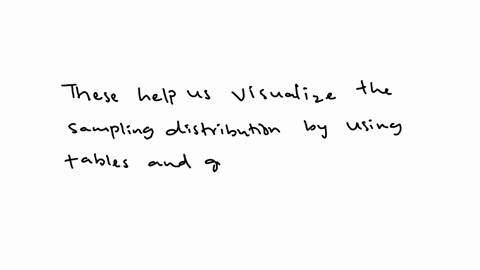 These help us visualize the
sampling distribution by using
tables and g